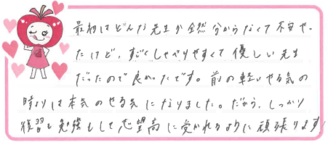 最初はどんな先生か全然分からなくて不安や
たけど、すごくしゃべりやすくて優しい先生
だったので良かったです。前の軽いやる気の
時よりは本気のやる気になりました。だから、しっかり
復習と勉強もして志望高に受かれるように頑張ります